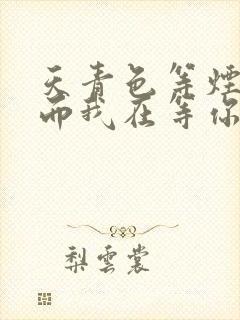 天青色等煙
而我在等你
梨雲裳